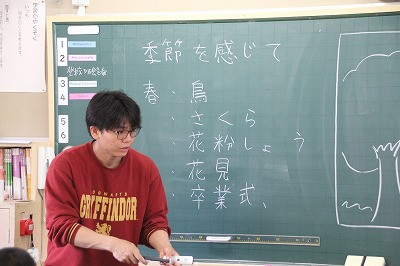 季節を感じて
春・鳥
・さくら
・花粉しょう
・花見
・卒業式、
1
2
3
4
5
6
HOGWARTS
GRYFFINDOR